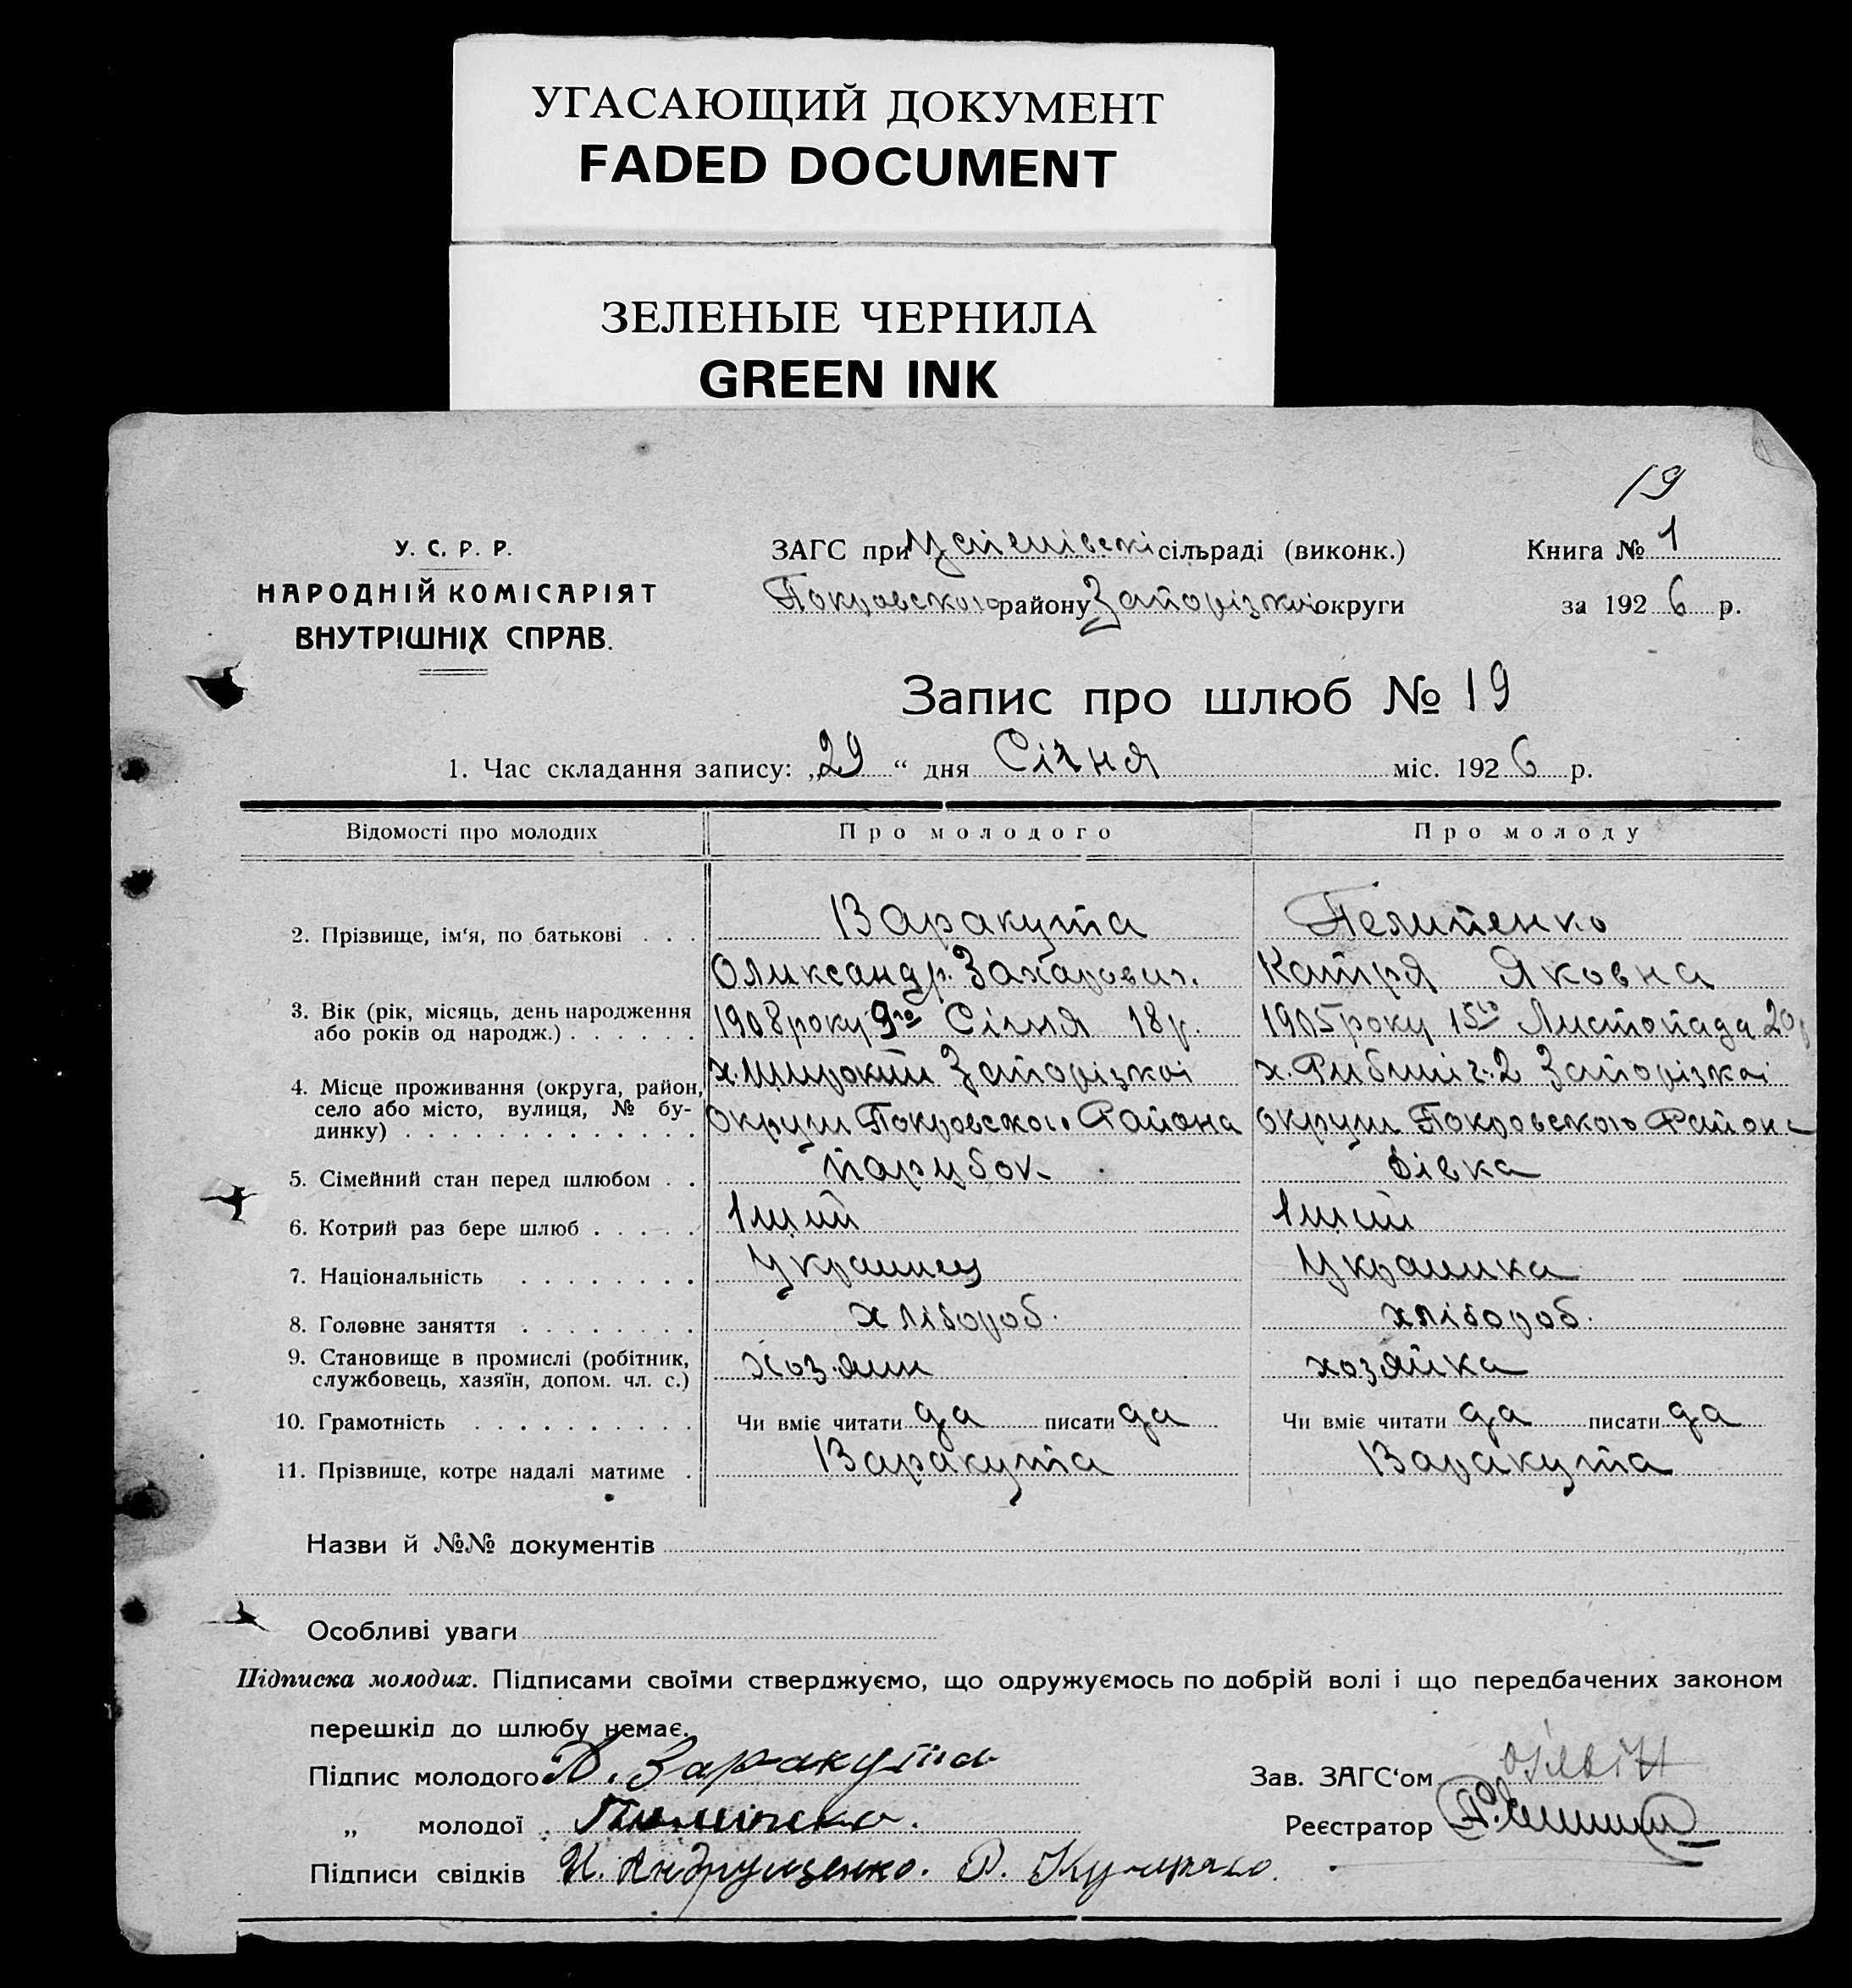 УГАСАЮЩИЙ ДОКУМЕНТ
FADED DOCUMENT
ЗЕЛЕНЫЕ ЧЕРНИЛА
GREEN INK
19
У. С. Р. Р.
НАРОДНІЙ КОМІСАРІЯТ
ВНУТРІШНІХ СПРАВ.
ЗАГС при Успенівскі сільраді (виконк.)
Покровского району Запорізкої округи
Книга № 1
за 1926 р.
Запис про шлюб № 19
1. Час складання запису: „29“ дня Січня міс. 1926 р.
Відомості про молодих Про молодого Про молоду
2. Прізвище, ім‘я, по батькові . . . Варакута Пелипенко
Олександр. Захарович. Катря Яковна
3. Вік (рік, місяць, день народження або років од народж.) . . . . . . 1908 року 9го Січня 18 р. 1905 року 15го Листопада 20 р
4. Місце проживання (округа, район, село або місто, вулиця, № будинку) . . . . . . . . . . . . . х. Широкий Запорізкої х. №2 Запорізкої
Округи Покровского Района Округи Покровского Района
5. Сімейний стан перед шлюбом . . парубок дівка
6. Котрий раз бере шлюб . . . . . 1ший 1ший
7. Національність . . . . . . . . Украинец Украинка
8. Головне заняття . . . . . . . . хлібороб. хлібороб.
9. Становище в промислі (робітник, службовець, хазяїн, допом. чл. с.) хозяин хозяйка
10. Грамотність . . . . . . . . . . Чи вміє читати да писати да Чи вміє читати да писати да
11. Прізвище, котре надалі матиме . Варакута Варакута
Назви й №№ документів
Особливі уваги
Підписка молодих. Підписами своїми стверджуємо, що одружуємось по добрій волі і що передбачених законом
перешкід до шлюбу немає.
Підпис молодого Варакута
Зав. ЗАГС‘ом
„ молодої
Реєстратор
Підписи свідків И. Андрущенко.